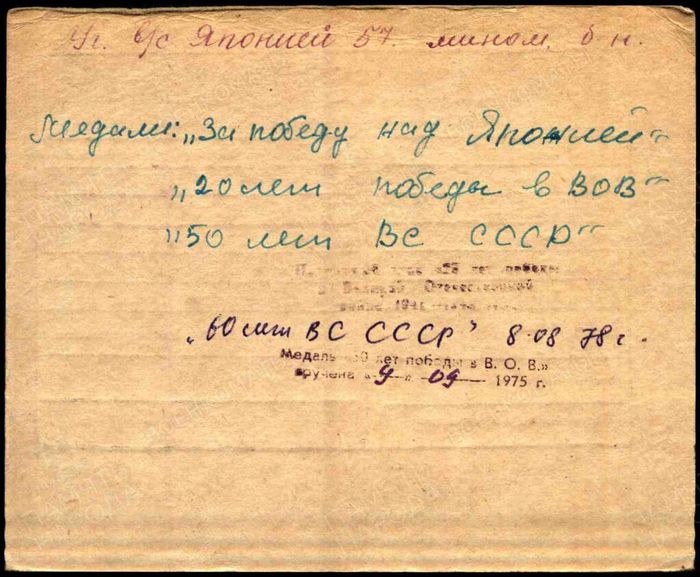 Уч. в/с Японией 57. мином. б-н.
Медали: „За победу над Японией“
„20 лет победы в ВОВ“
„50 лет ВС СССР“
знак «25 лет победы
в Великой Отечественной
войне 1941
„60 лет ВС СССР“ 8.08 78 г.
Медаль «30 лет победы в В. О. В.»
вручена «9» 04 1975 г.